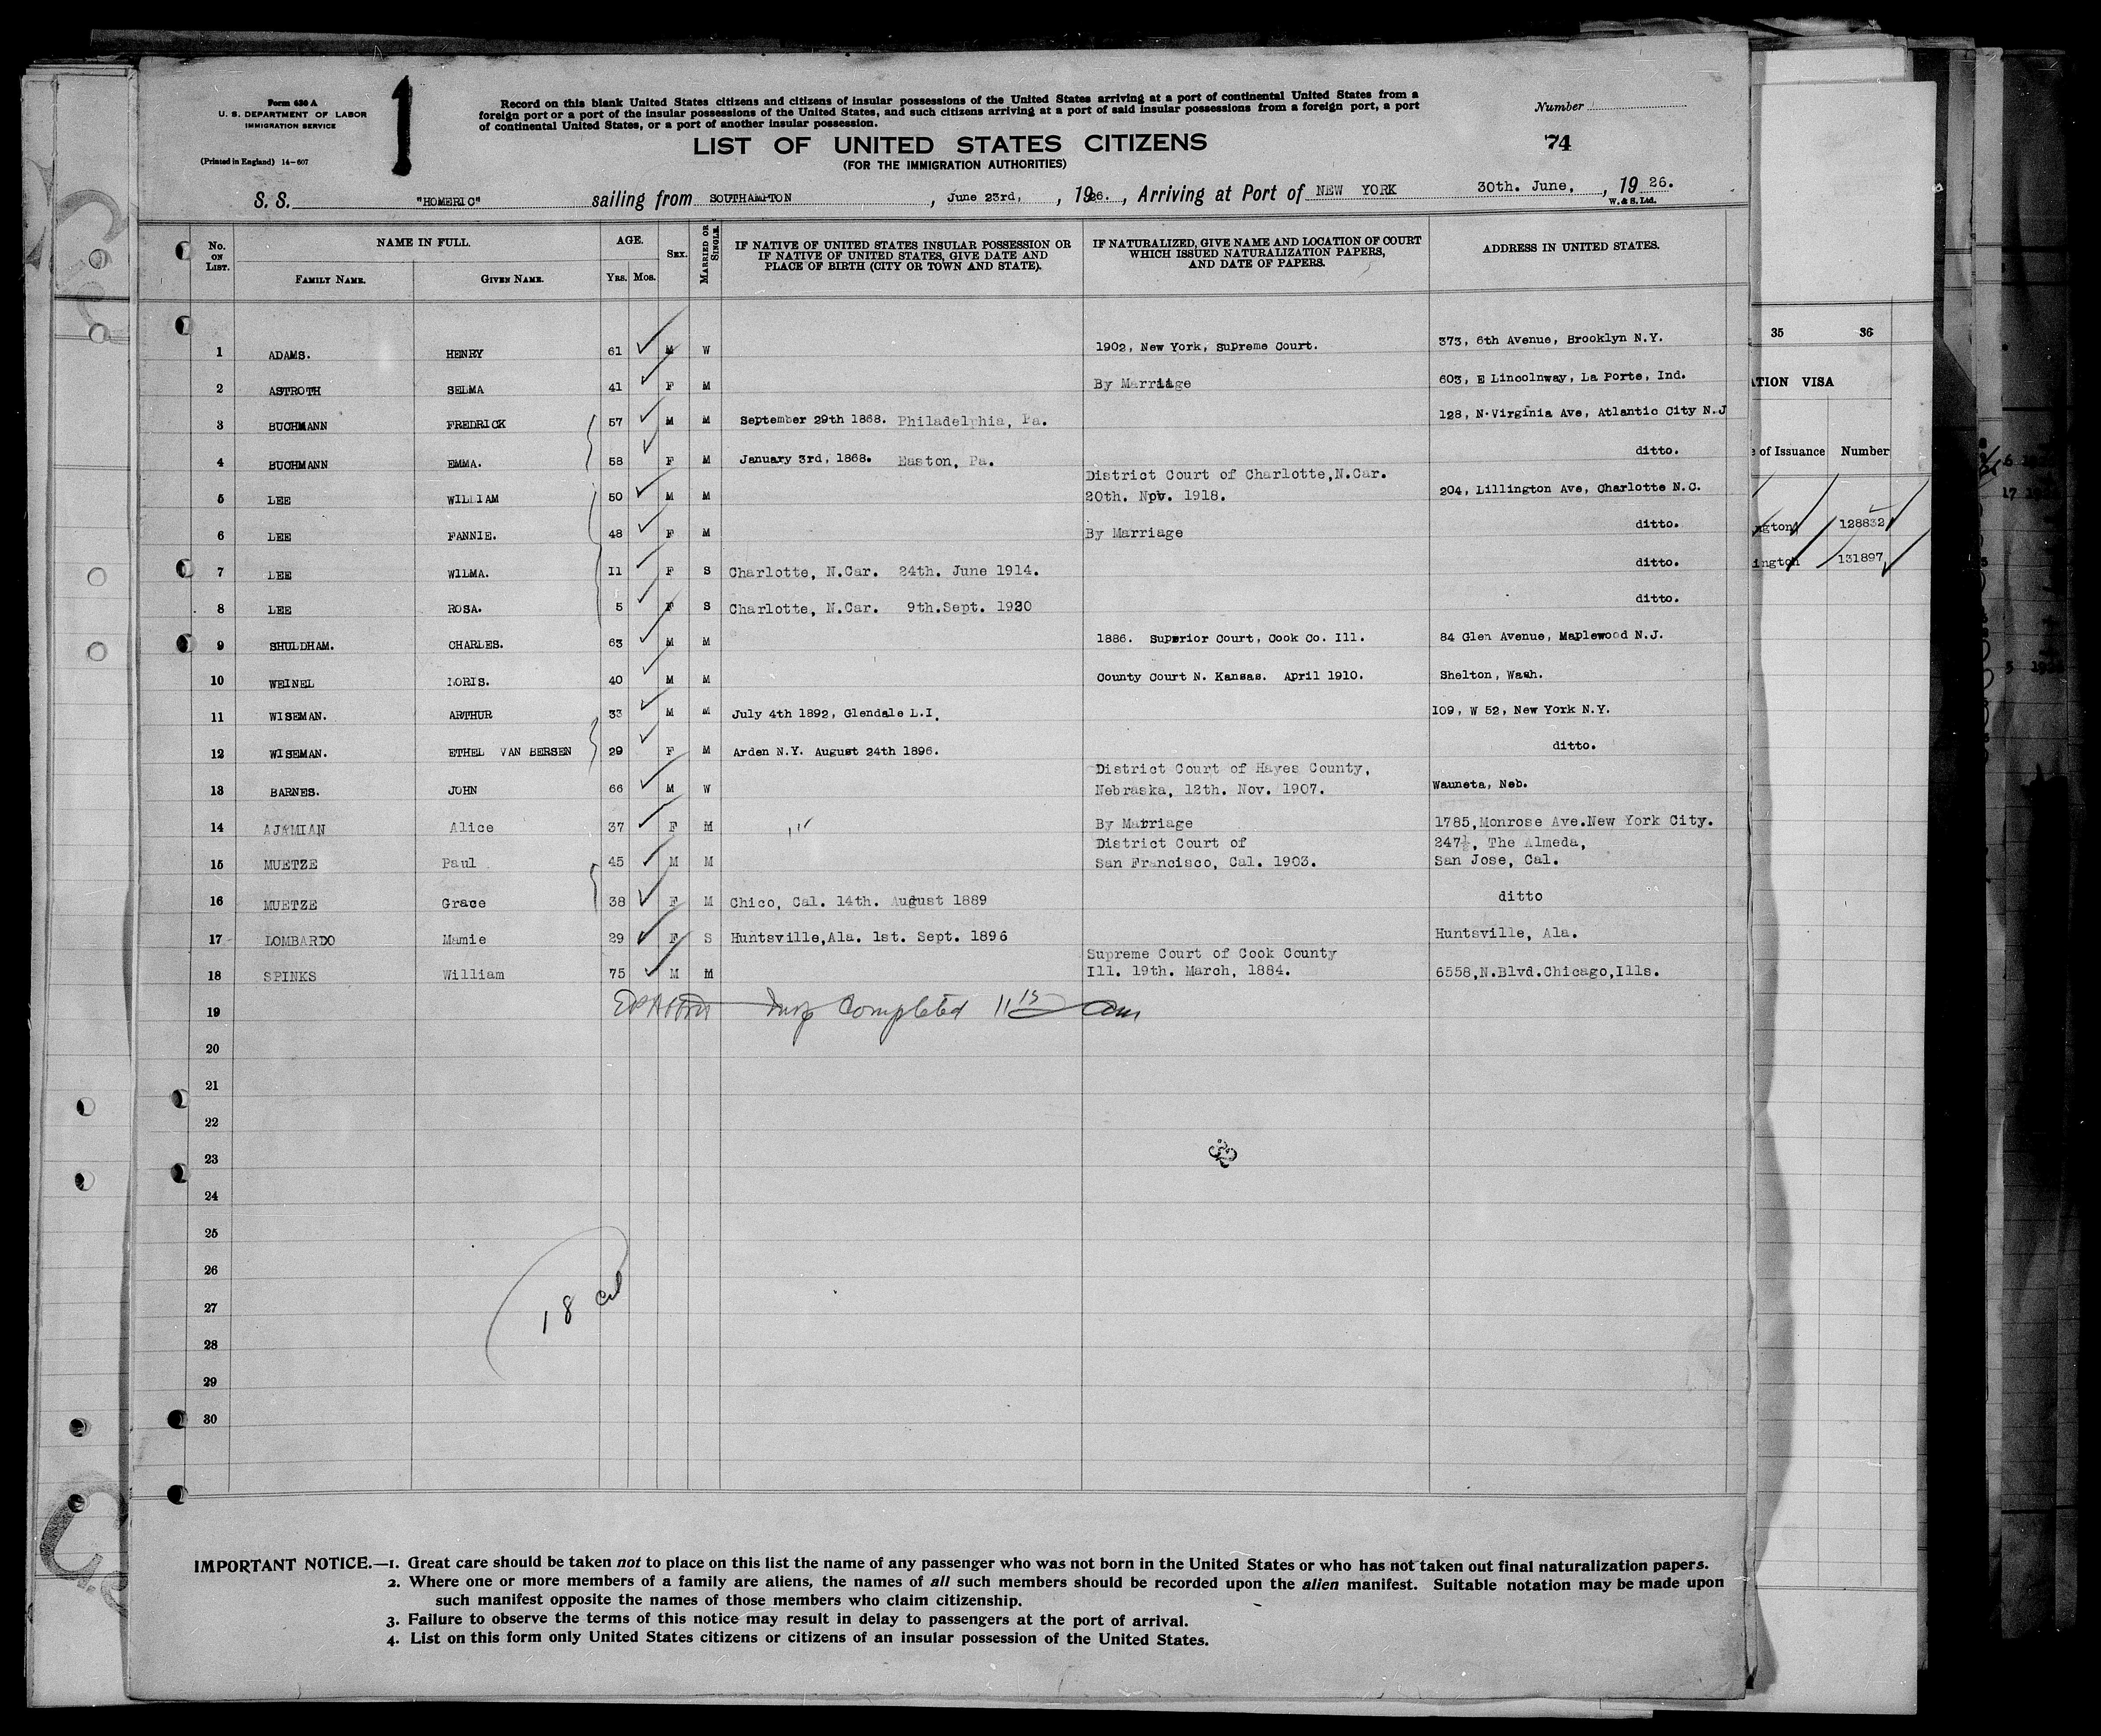 Form 630 A
U. S. DEPARTMENT OF LABOR
IMMIGRATION SERVICE
(Printed in England) 14—607
1
Record on this blank United States citizens and citizens of insular possessions of the United States arriving at a port of continental United States from a
foreign port or a port of the insular possessions of the United States, and such citizens arriving at a port of said insular possessions from a foreign port, a port
of continental United States, or a port of another insular possession.
Number
LIST OF UNITED STATES CITIZENS
74
(FOR THE IMMIGRATION AUTHORITIES)
S. S. "HOMERIC" sailing from SOUTHAMPTON, June 23rd, , 1926. , Arriving at Port of NEW YORK 30th. June, , 19 26.
W. & S. Ltd.
No. ON LIST. NAME IN FULL. AGE. SEX. MARRIED OR SINGLE. IF NATIVE OF UNITED STATES INSULAR POSSESSION OR IF NATIVE OF UNITED STATES, GIVE DATE AND PLACE OF BIRTH (CITY OR TOWN AND STATE). IF NATURALIZED, GIVE NAME AND LOCATION OF COURT WHICH ISSUED NATURALIZATION PAPERS, AND DATE OF PAPERS. ADDRESS IN UNITED STATES.
FAMILY NAME. GIVEN NAME. YRS. MOS.
1 ADAMS. HENRY 61 M W 1902, New York, Supreme Court. 373, 6th Avenue, Brooklyn N.Y.
2 ASTROTH SELMA 41 F M By Marriage 603, E Lincolnway, La Porte, Ind.
3 BUCHMANN FREDRICK 57 M M September 29th 1868. Philadelphia, Pa. 128, N.Virginia Ave, Atlantic City N.J
4 BUCHMANN EMMA. 58 F M January 3rd, 1868. Easton, Pa. ditto.
District Court of Charlotte,N.Car.
5 LEE WILLIAM 50 M M 20th. Nov. 1918. 204, Lillington Ave, Charlotte N.C.
6 LEE FANNIE. 48 F M By Marriage ditto.
7 LEE WILMA. 11 F S Charlotte, N.Car. 24th. June 1914. ditto.
8 LEE ROSA. 5 F S Charlotte, N.Car. 9th.Sept. 1920 ditto.
9 SHULDHAM. CHARLES. 63 M M 1886. Superior Court, Cook Co. Ill. 84 Glen Avenue, Maplewood N.J.
10 WEINEL LORIS. 40 M M County Court N. Kansas. April 1910. Shelton, Wash.
11 WISEMAN. ARTHUR 33 M M July 4th 1892, Glendale L.I. 109, W 52, New York N.Y.
12 WISEMAN. ETHEL VAN BERSEN 29 F M Arden N.Y. August 24th 1896. ditto.
District Court of Hayes County,
13 BARNES. JOHN 66 M W Nebraska, 12th. Nov. 1907. Wauneta, Neb.
14 AJAMIAN Alice 37 F M By Marriage 1785,Monrose Ave.New York City.
District Court of 247½, The Almeda,
15 MUETZE Paul 45 M M San Francisco, Cal. 1903. San Jose, Cal.
16 MUETZE Grace 38 F M Chico, Cal. 14th. August 1889 ditto
17 LOMBARDO Mamie 29 F S Huntsville,Ala. 1st. Sept. 1896 Huntsville, Ala.
Supreme Court of Cook County
18 SPINKS William 75 M M Ill. 19th. March, 1884. 6558,N.Blvd.Chicago,Ills.
19 Completed 11 15 am
20
21
22
23
24
25
26
27
28
29
30
18
IMPORTANT NOTICE.—1. Great care should be taken not to place on this list the name of any passenger who was not born in the United States or who has not taken out final naturalization papers.
2. Where one or more members of a family are aliens, the names of all such members should be recorded upon the alien manifest. Suitable notation may be made upon
such manifest opposite the names of those members who claim citizenship.
3. Failure to observe the terms of this notice may result in delay to passengers at the port of arrival.
4. List on this form only United States citizens or citizens of an insular possession of the United States.
35 36
VISA
of Issuance Number
128832
131897